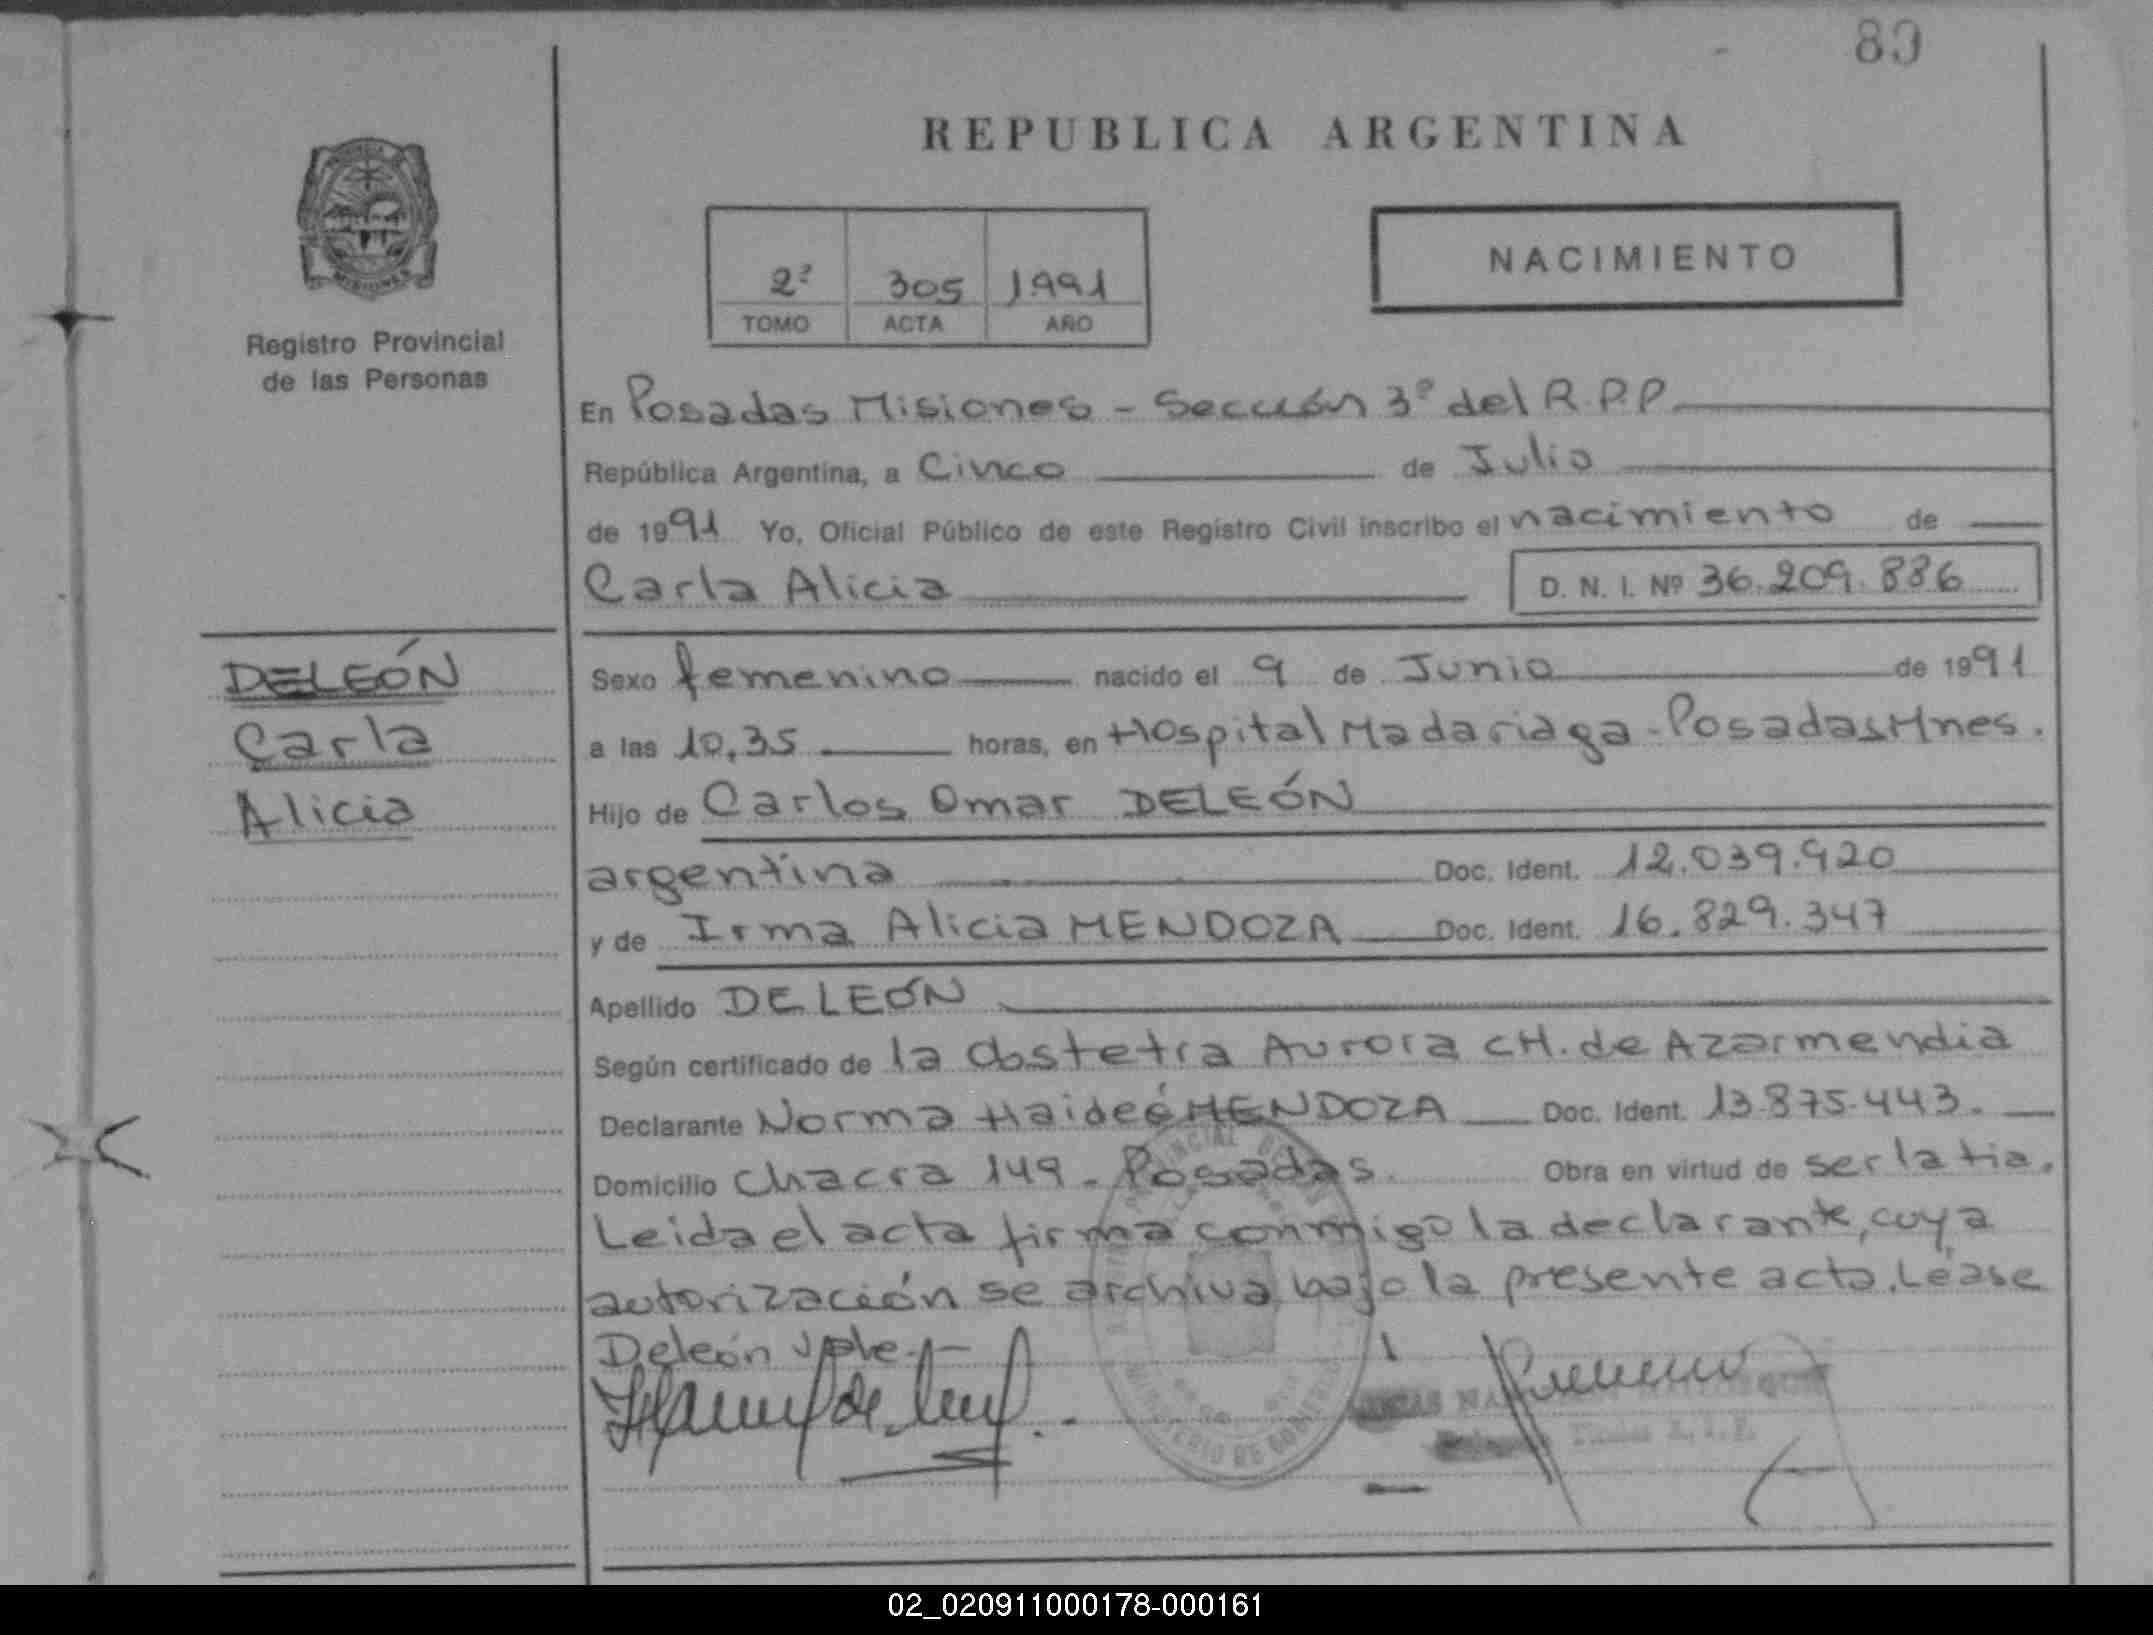 80
REPUBLICA ARGENTINA
NACIMIENTO
2º 305 1991
TOMO ACTA AÑO
Registro Provincial
de las Personas
En Posadas Misiones - Sección 3º del R.P.P.
República Argentina, a Cinco de Julio
de 1991 Yo, Oficial Público de este Registro Civil inscribo el nacimiento de
Carla Alicia D. N. I. Nº 36.209.886
DELEÓN
Carla
Alicia
Sexo femenino nacido el 9 de Junio de 1991
a las 10,35 horas, en Hospital Madariaga - Posadas Mnes.
Hijo de Carlos Omar DELEÓN
argentina Doc. Ident. 12.039.920
y de Irma Alicia MENDOZA Doc. Ident. 16.829.347
Apellido DELEÓN
Según certificado de la Obstetra Aurora CH. de Azarmendia
Declarante Norma Haideé MENDOZA Doc. Ident. 13.875.443.
Domicilio Chacra 149 - Posadas. Obra en virtud de ser la tia.
Leida el acta firma conmigo la declarante, cuya
autorización se archiva bajo la presente acta. Léase
Deleón Vple.
MINISTERIO DE GOBIERNO
02_020911000178-000161